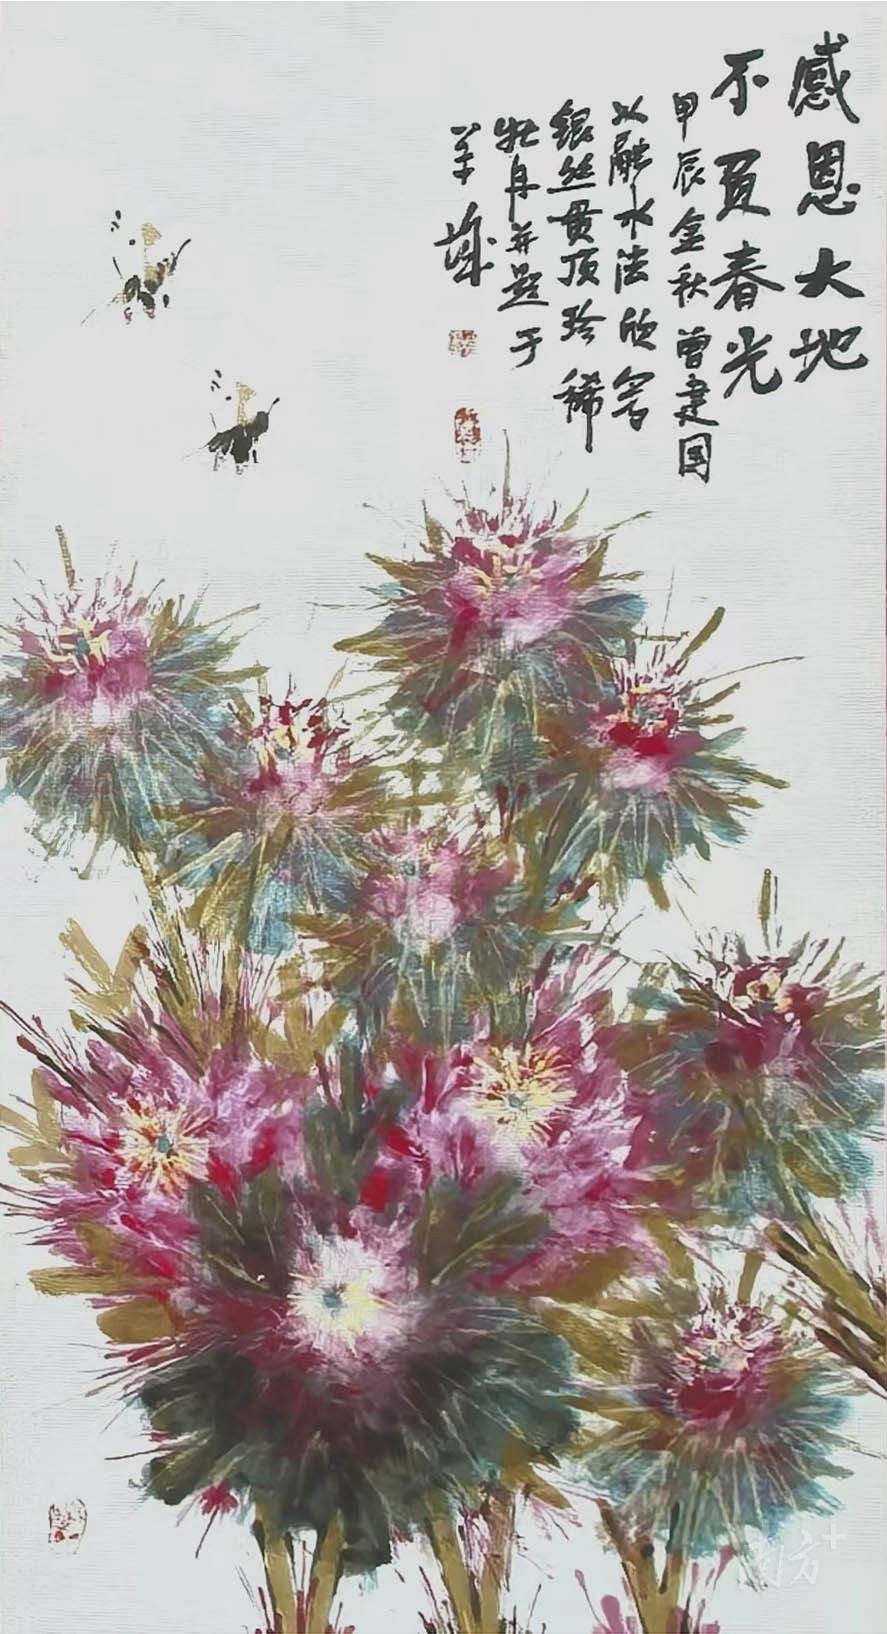 感恩大地
不負春光
甲辰金秋曾建国
以融水法欣写
银丝贯顶珍稀
牡丹并题于
羊城
南方+